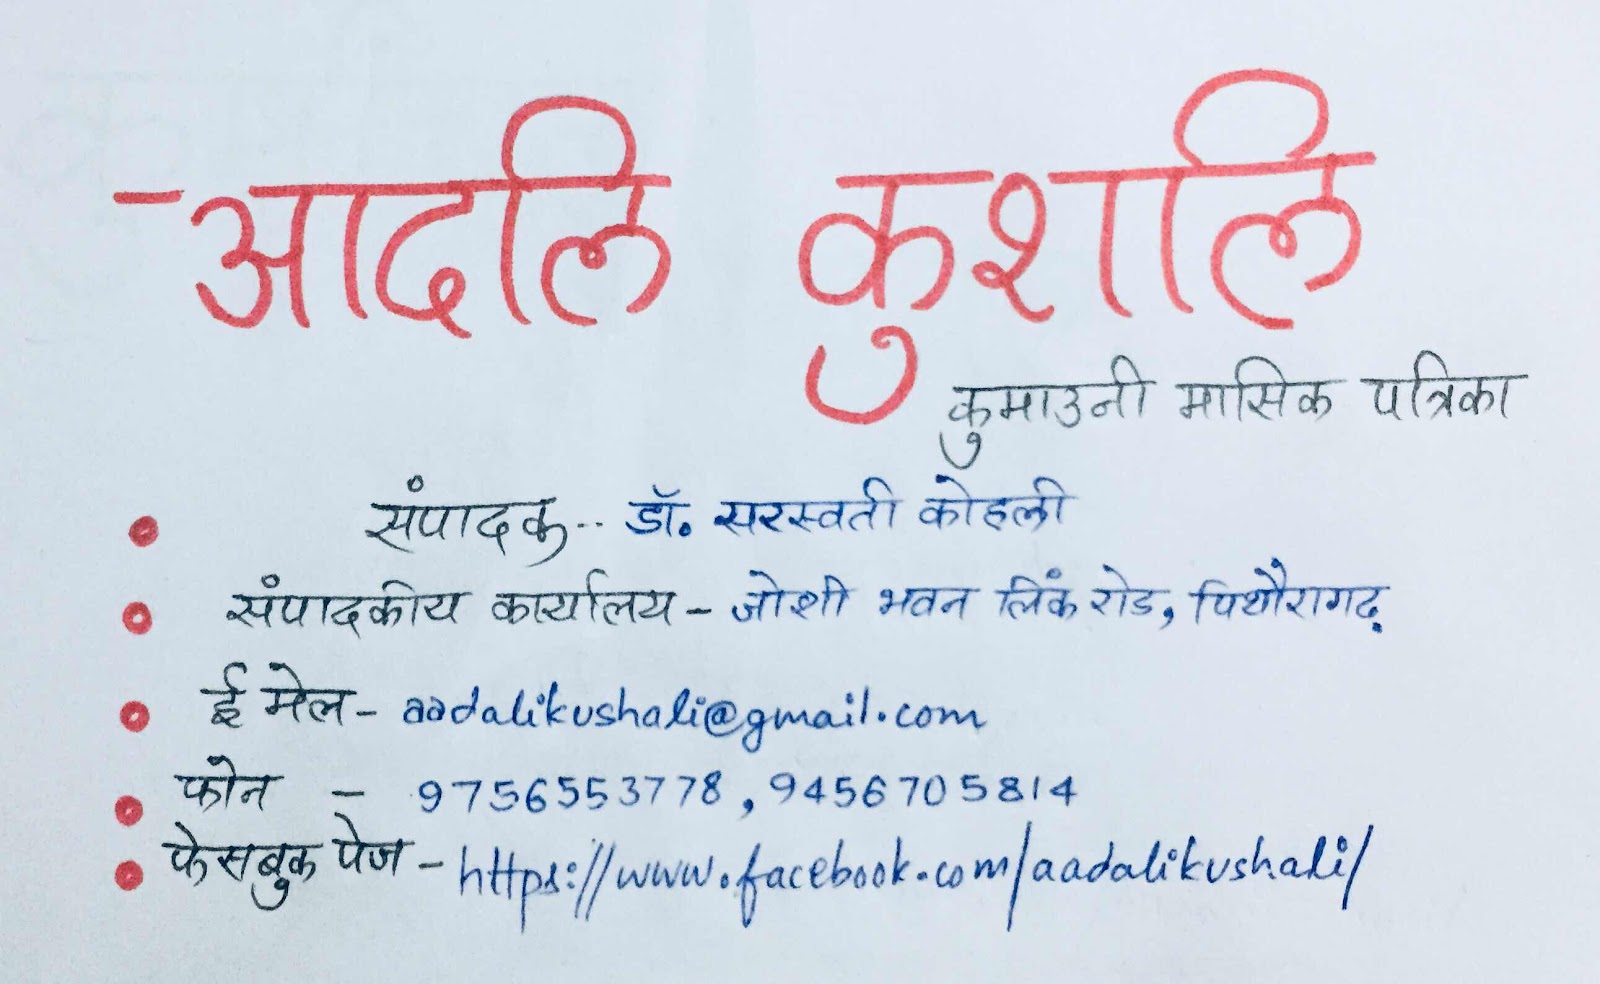 आदलि कुशलि
कुमाउनी मासिक पत्रिका
संपादक-- डॉ. सरस्वती कोहली
संपादकीय कार्यालय - जोशी भवन लिंक रोड, पिथौरागढ़
ई मेल - aadalikushali@gmail.com
फोन - 9756553778, 9456705814
फेसबुक पेज - https://www.facebook.com/aadalikushali/